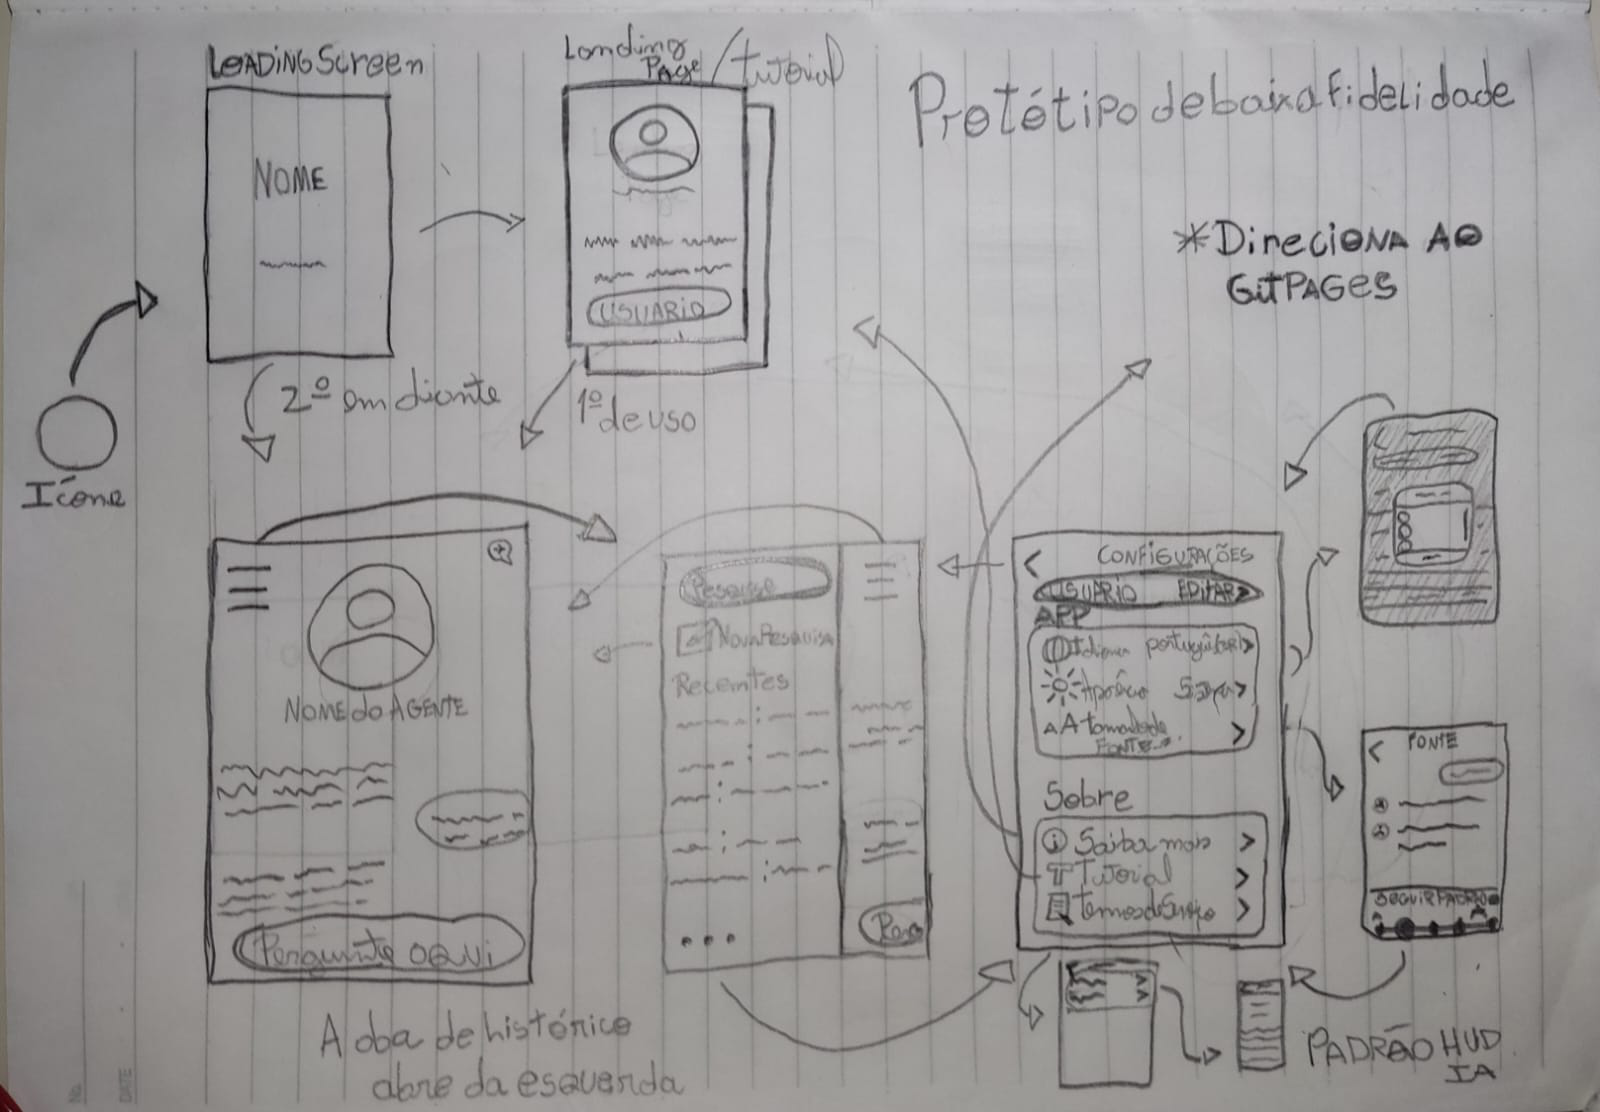 LOADING Screen
Landing
PAGE / Tutorial
Protótipo de baixa fidelidade
NOME
USUÁRIO
*Direciona AO
GitPAGES
2º em diante
1º de uso
Ícone
NOME do AGENTE
Pergunte aqui
A aba de histórico
abre da esquerda
Pesquise
Nova Pesquisa
Recentes
...
CONFIGURAÇÕES
USUÁRIO EDITAR >
APP
Idioma português(BR) >
>
AA tamanho da >
FONTE
Sobre
Saiba mais >
Tutorial >
Termos de Serviço >
FONTE
SEGUIR PADRÃO
PADRÃO HUD
IA